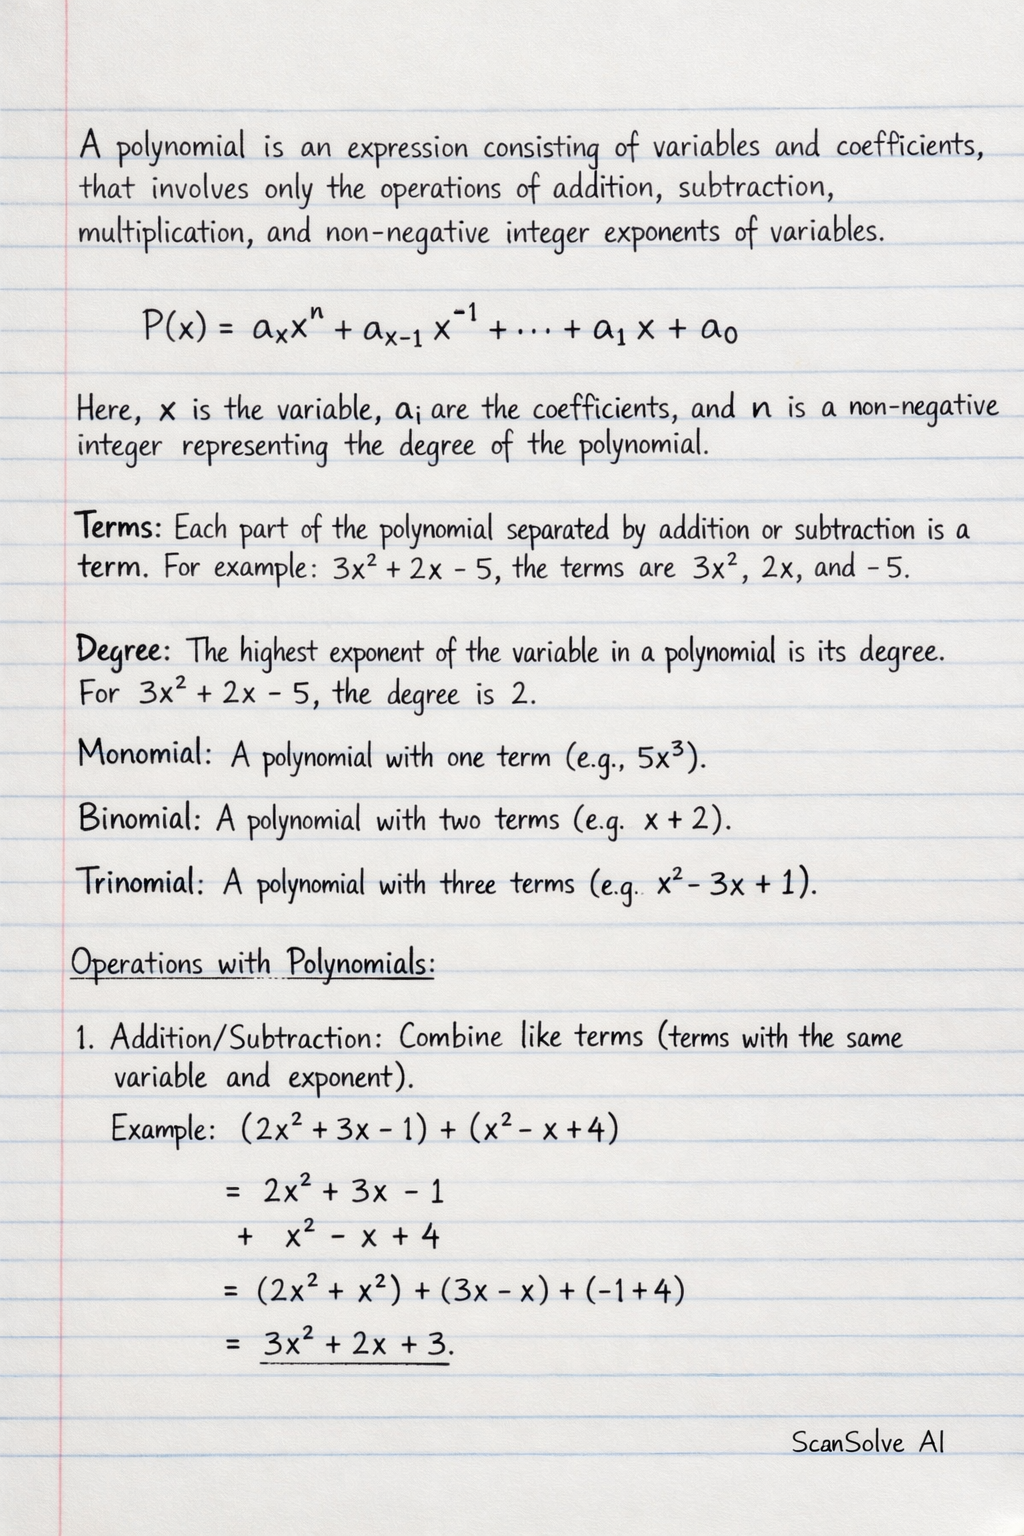 A polynomial is an expression consisting of variables and coefficients,
that involves only the operations of addition, subtraction,
multiplication, and non-negative integer exponents of variables.
P(x) = aₓxⁿ + aₓ₋₁ x⁻¹ + ⋯ + a₁ x + a₀
Here, x is the variable, aᵢ are the coefficients, and n is a non-negative
integer representing the degree of the polynomial.
Terms: Each part of the polynomial separated by addition or subtraction is a
term. For example: 3x² + 2x - 5, the terms are 3x², 2x, and -5.
Degree: The highest exponent of the variable in a polynomial is its degree.
For 3x² + 2x - 5, the degree is 2.
Monomial: A polynomial with one term (e.g., 5x³).
Binomial: A polynomial with two terms (e.g. x + 2).
Trinomial: A polynomial with three terms (e.g. x² - 3x + 1).
Operations with Polynomials:
1. Addition/Subtraction: Combine like terms (terms with the same
variable and exponent).
Example: (2x² + 3x - 1) + (x² - x + 4)
= 2x² + 3x - 1
+ x² - x + 4
= (2x² + x²) + (3x - x) + (-1 + 4)
= 3x² + 2x + 3.
ScanSolve AI